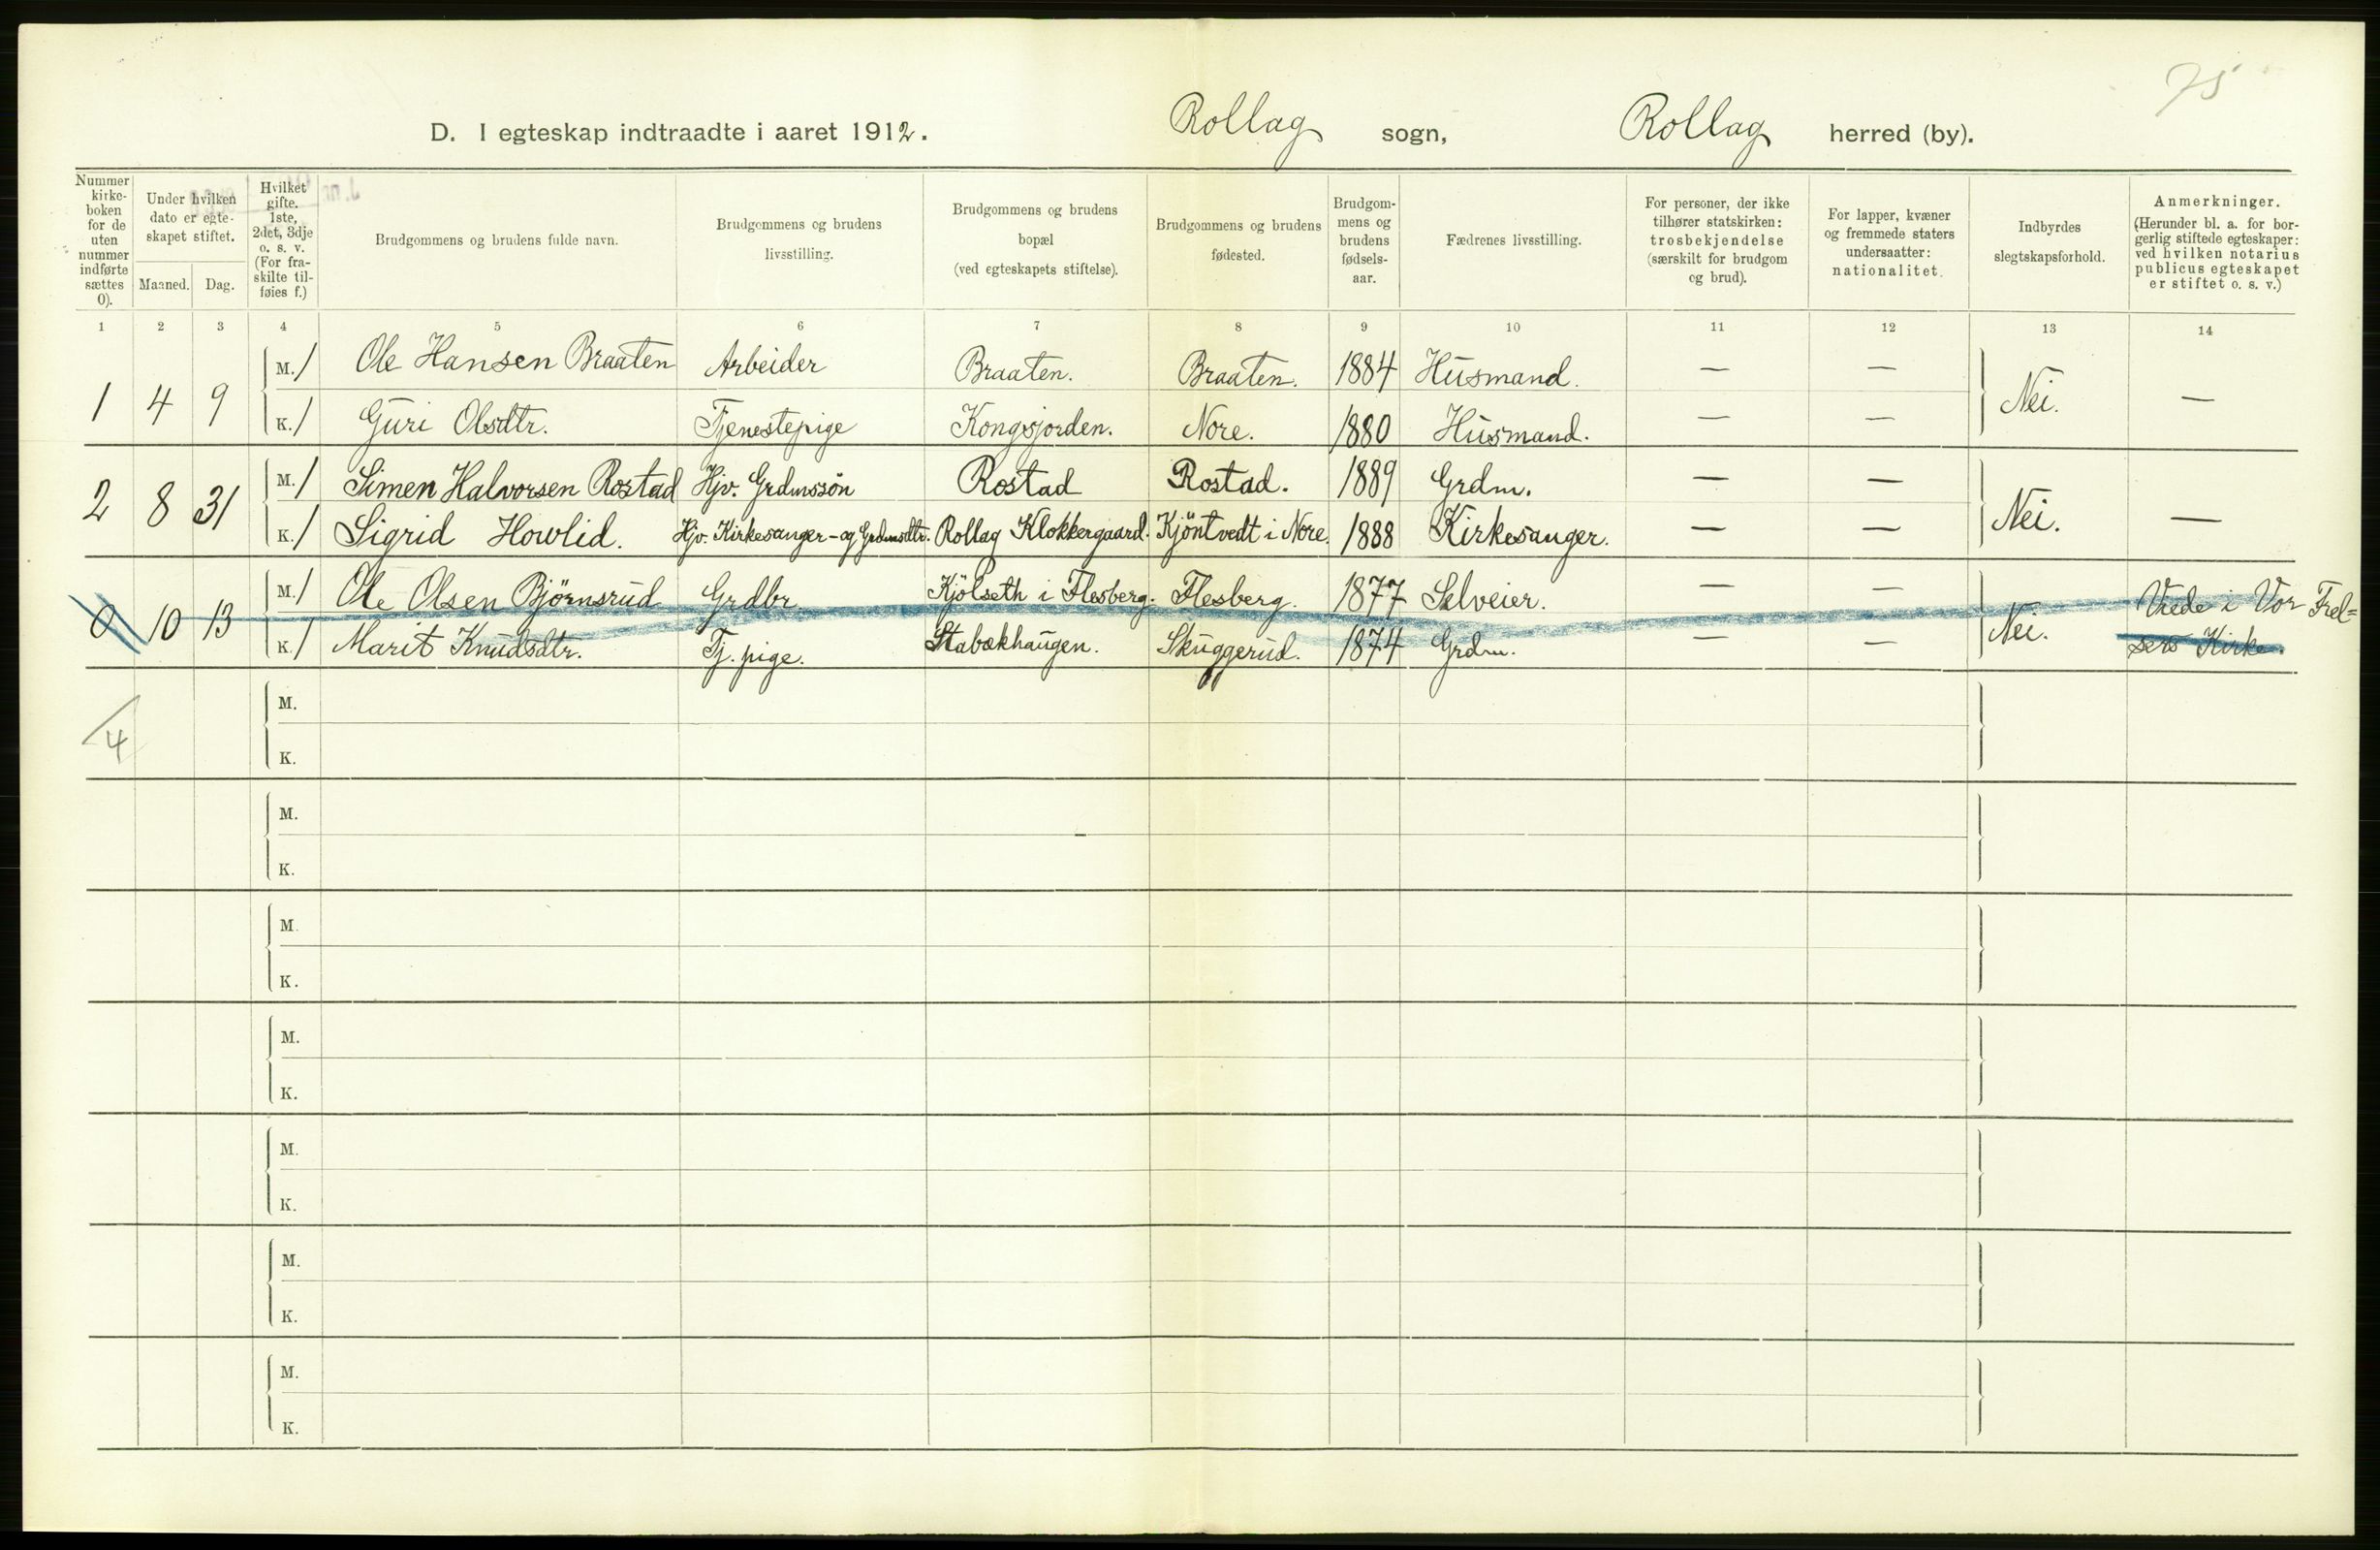 75
D. I egteskap indtraadte i aaret 1912. Rollag sogn, Rollag herred (by).
J. nr.
Nummer kirke-boken for de uten nummer indførte sættes 0).
Under hvilken dato er egte-skapet stiftet.
Maaned. Dag.
Hvilket gifte. 1ste, 2det, 3dje o. s. v. (For fra-skilte til-føies f.)
Brudgommens og brudens fulde navn.
Brudgommens og brudens livsstilling.
Brudgommens og brudens bopæl (ved egteskapets stiftelse).
Brudgommens og brudens fødested.
Brudgom-mens og brudens fødsels-aar.
Fædrenes livsstilling.
For personer, der ikke tilhører statskirken: trosbekjendelse (særskilt for brudgom og brud).
For lapper, kvæner og fremmede staters undersaatter: nationalitet.
Indbyrdes slegtskapsforhold.
Anmerkninger. (Herunder bl. a. for bor-gerlig stiftede egteskaper: ved hvilken notarius publicus egteskapet er stiftet o. s. v.)
1 2 3 4 5 6 7 8 9 10 11 12 13 14
1 4 9 M. 1 Ole Hansen Braaten Arbeider Braaten. Braaten. 1884 Husmand. — — Nei. —
K. 1 Guri Olsdtr. Tjenestepige Kongsjorden. Nore. 1880 Husmand. — —
2 8 31 M. 1 Simen Halvorsen Rostad Hjv. Grdmssön Rostad Rostad. 1889 Grdm. — — Nei. —
K. 1 Sigrid Howlid. Hjv. Kirkesanger- og Grdmsdtr. Rollag Klokkergaard. Kjöntvedt i Nore. 1888 Kirkesanger. — —
0 10 13 M. 1 Ole Olsen Bjørnsrud Grdbr. Kjölseth i Flesberg. Flesberg. 1877 Selveier. — — Nei. Viede i Vor Frel=
K. 1 Marit Knudsdtr. Tj. pige. Stabækhaugen. Skuggerud. 1874 Grdm. — — sers Kirke.
4
M.
K.
M.
K.
M.
K.
M.
K.
M.
K.
M.
K.
M.
K.